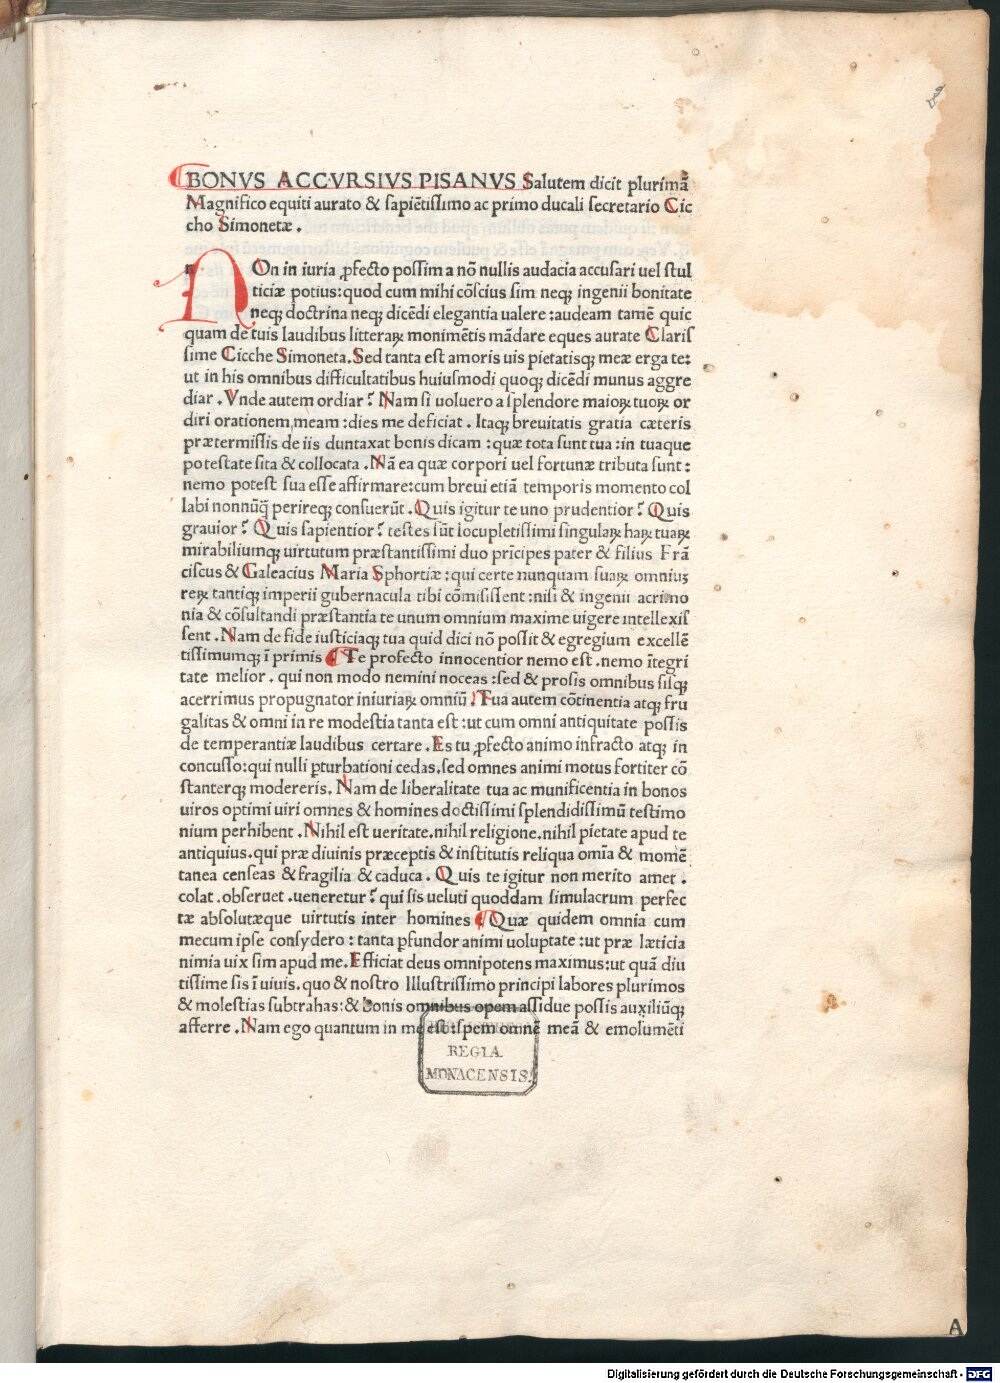 BONVS ACCVRSIVS PISANVS Salutem dicit plurimā
Magnifico equiti aurato & sapiētissimo ac primo ducali secretario Cic
cho Simonetæ.
NOn in iuria ꝓfecto possim a nō nullis audacia accusari uel stul
ticiæ potius: quod cum mihi cōscius sim neqꝫ ingenii bonitate
neqꝫ doctrina neqꝫ dicēdi elegantia ualere: audeam tamē quic
quam de tuis laudibus litteraꝝ monimētis mādare eques aurate Clariſ
sime Cicche Simoneta. Sed tanta est amoris uis pietatisqꝫ meæ erga te:
ut in his omnibus difficultatibus huiusmodi quoqꝫ dicēdi munus aggre
diar. Vnde autem ordiar? Nam si uoluero a splendore maioꝝ tuoꝝ or
diri orationem meam: dies me deficiat. Itaqꝫ breuitatis gratia cæteris
prætermissis de iis duntaxat bonis dicam: quæ tota sunt tua: in tuaque
potestate sita & collocata. Nā ea quæ corpori uel fortunæ tributa sunt:
nemo potest sua esse affirmare: cum breui etiā temporis momento col
labi nonnūq̄ perireqꝫ consuerūt. Quis igitur te uno prudentior? Quis
grauior? Quis sapientior? testes sūt locupletissimi singulaꝝ haꝝ tuaꝝ
mirabiliumqꝫ uirtutum præstantissimi duo prīcipes pater & filius Frā
ciscus & Galeacius Maria Sphortiæ: qui certe nunquam suaꝝ omniuꝫ
reꝝ tantiqꝫ imperii gubernacula tibi cōmisissent: nisi & ingenii acrimo
nia & cōsultandi præstantia te unum omnium maxime uigere intellexis
sent. Nam de fide iusticiaqꝫ tua quid dici nō possit & egregium excellē
tissimumqꝫ ī primis. Te profecto innocentior nemo est. nemo ītegri
tate melior. qui non modo nemini noceas: sed & prosis omnibus sisqꝫ
acerrimus propugnator iniuriaꝝ omniū. Tua autem cōtinentia atqꝫ fru
galitas & omni in re modestia tanta est: ut cum omni antiquitate possis
de temperantiæ laudibus certare. Es tu ꝓfecto animo infracto atqꝫ in
concusso: qui nulli ꝑturbationi cedas. sed omnes animi motus fortiter cō
stanterqꝫ modereris. Nam de liberalitate tua ac munificentia in bonos
uiros optimi uiri omnes & homines doctissimi splendidissimū testimo
nium perhibent. Nihil est ueritate. nihil religione. nihil pietate apud te
antiquius. qui præ diuinis præceptis & institutis reliqua omīa & momē
tanea censeas & fragilia & caduca. Quis te igitur non merito amet.
colat. obseruet. ueneretur? qui sis ueluti quoddam simulacrum perfec
tæ absolutæque uirtutis inter homines Quæ quidem omnia cum
mecum ipse consydero: tanta ꝑfundor animi uoluptate: ut præ læticia
nimia uix sim apud me. Efficiat deus omnipotens maximus: ut quā diu
tissime sis ī uiuis. quo & nostro Illustrissimo principi labores plurimos
& molestias subtrahas: & bonis omnibus opem assidue possis auxiliūqꝫ
afferre. Nam ego quantum in me est: spem omnē meā & emolumēti
REGIA
MONACENSIS.
A
Digitalisierung gefördert durch die Deutsche Forschungsgemeinschaft - DFG